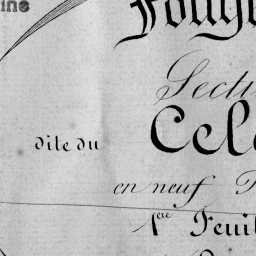 ine
Foug
Secti
dite du Cel
en neuf F
1ère Feuil